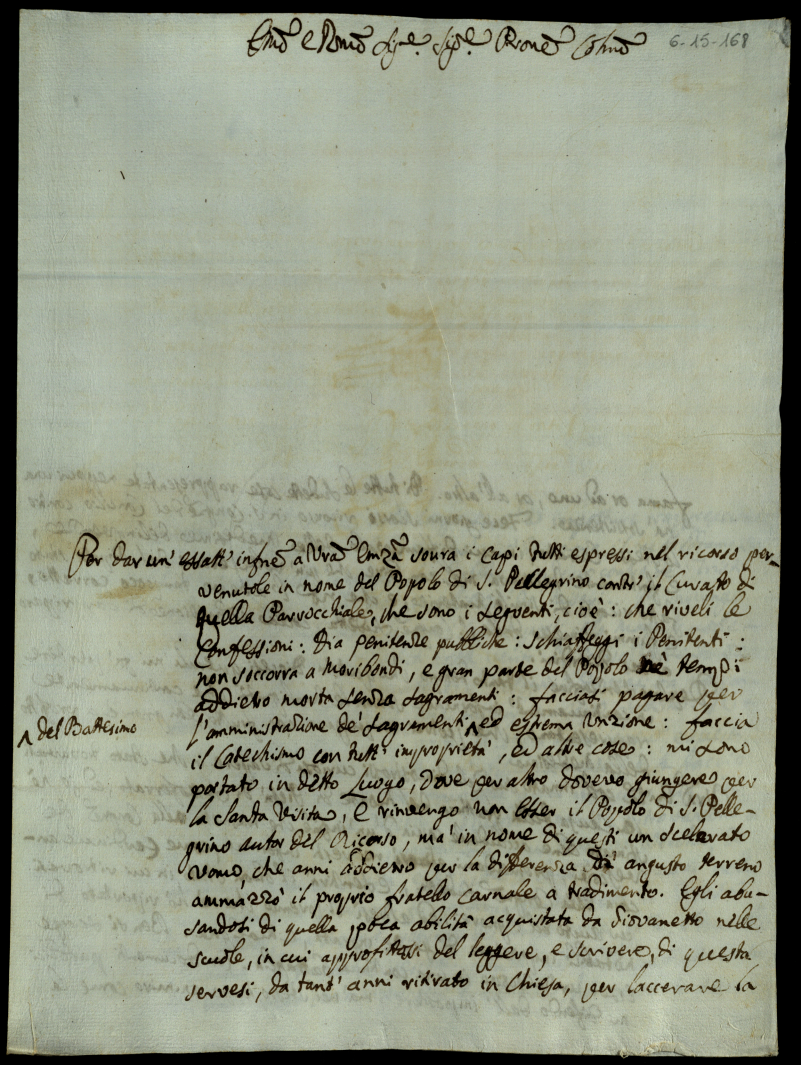 Emō e Rmō Sig.re Sig.re Prone Colmō
6-15-168
Per dar un' essatt' infne a Vrā Emzā soura i capi tutti espressi nel ricorso per-
venutole in nome del Popolo di S. Pellegrino contr' il Curato di
quella Parrocchiale, che sono i seguenti, cioè: che riveli le
Confessioni: Dia penitenze publiche: schiaffeggi i Penitenti:
non soccorra a Moribondi, e gran parte del Popolo nè tempi
addietro morta senza sagramenti: facciasi pagare per
l'amministrazione de' Sagramenti ^ ed estrema Unzione: faccia
^ del Battesimo
il Catechismo con tutt' improprietà, ed altre cose: mi sono
portato in detto Luogo, dove per altro dovevo giungere per
la Santa Visita, e rinvengo non esser il Popolo di S. Pelle-
grino autor del Ricorso, ma' in nome di questi un scelerato
Uomo, che anni addietro per la differenza di angusto terreno
ammazzò il proprio fratello carnale a tradimento. Egli abu-
sandosi di quella poca abilità acquistata da Giovanetto nelle
scuole, in cui approfittossi del leggere, e scrivere, di questa
servesi, da tant' anni ritirato in Chiesa, per laccerare la